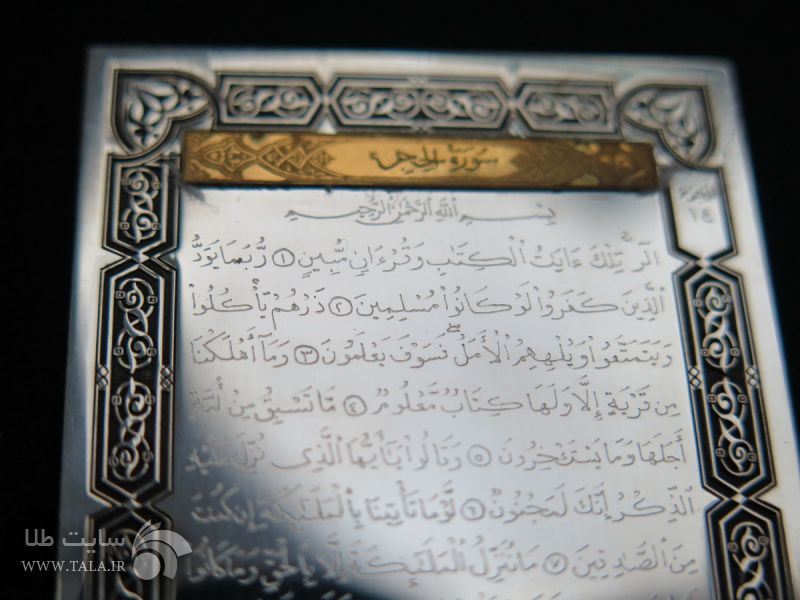 سورة الحجر
الجزء
١٤
بِسْمِ اللَّهِ الرَّحْمَٰنِ الرَّحِيمِ
الٓر ۚ تِلْكَ ءَايَٰتُ ٱلْكِتَٰبِ وَقُرْءَانٍ مُّبِينٍ ١ رُّبَمَا يَوَدُّ
ٱلَّذِينَ كَفَرُوا۟ لَوْ كَانُوا۟ مُسْلِمِينَ ٢ ذَرْهُمْ يَأْكُلُوا۟
وَيَتَمَتَّعُوا۟ وَيُلْهِهِمُ ٱلْأَمَلُ ۖ فَسَوْفَ يَعْلَمُونَ ٣ وَمَآ أَهْلَكْنَا
مِن قَرْيَةٍ إِلَّا وَلَهَا كِتَابٌ مَّعْلُومٌ ٤ مَّا تَسْبِقُ مِنْ أُمَّةٍ
أَجَلَهَا وَمَا يَسْتَـْٔخِرُونَ ٥ وَقَالُوا۟ يَٰٓأَيُّهَا ٱلَّذِى نُزِّلَ عَلَيْهِ
ٱلذِّكْرُ إِنَّكَ لَمَجْنُونٌ ٦ لَّوْ مَا تَأْتِينَا بِٱلْمَلَٰٓئِكَةِ إِن كُنتَ
مِنَ ٱلصَّٰدِقِينَ ٧ مَا نُنَزِّلُ ٱلْمَلَٰٓئِكَةَ إِلَّا بِٱلْحَقِّ وَمَا كَانُوٓا۟
سایت طلا
WWW.TALA.IR